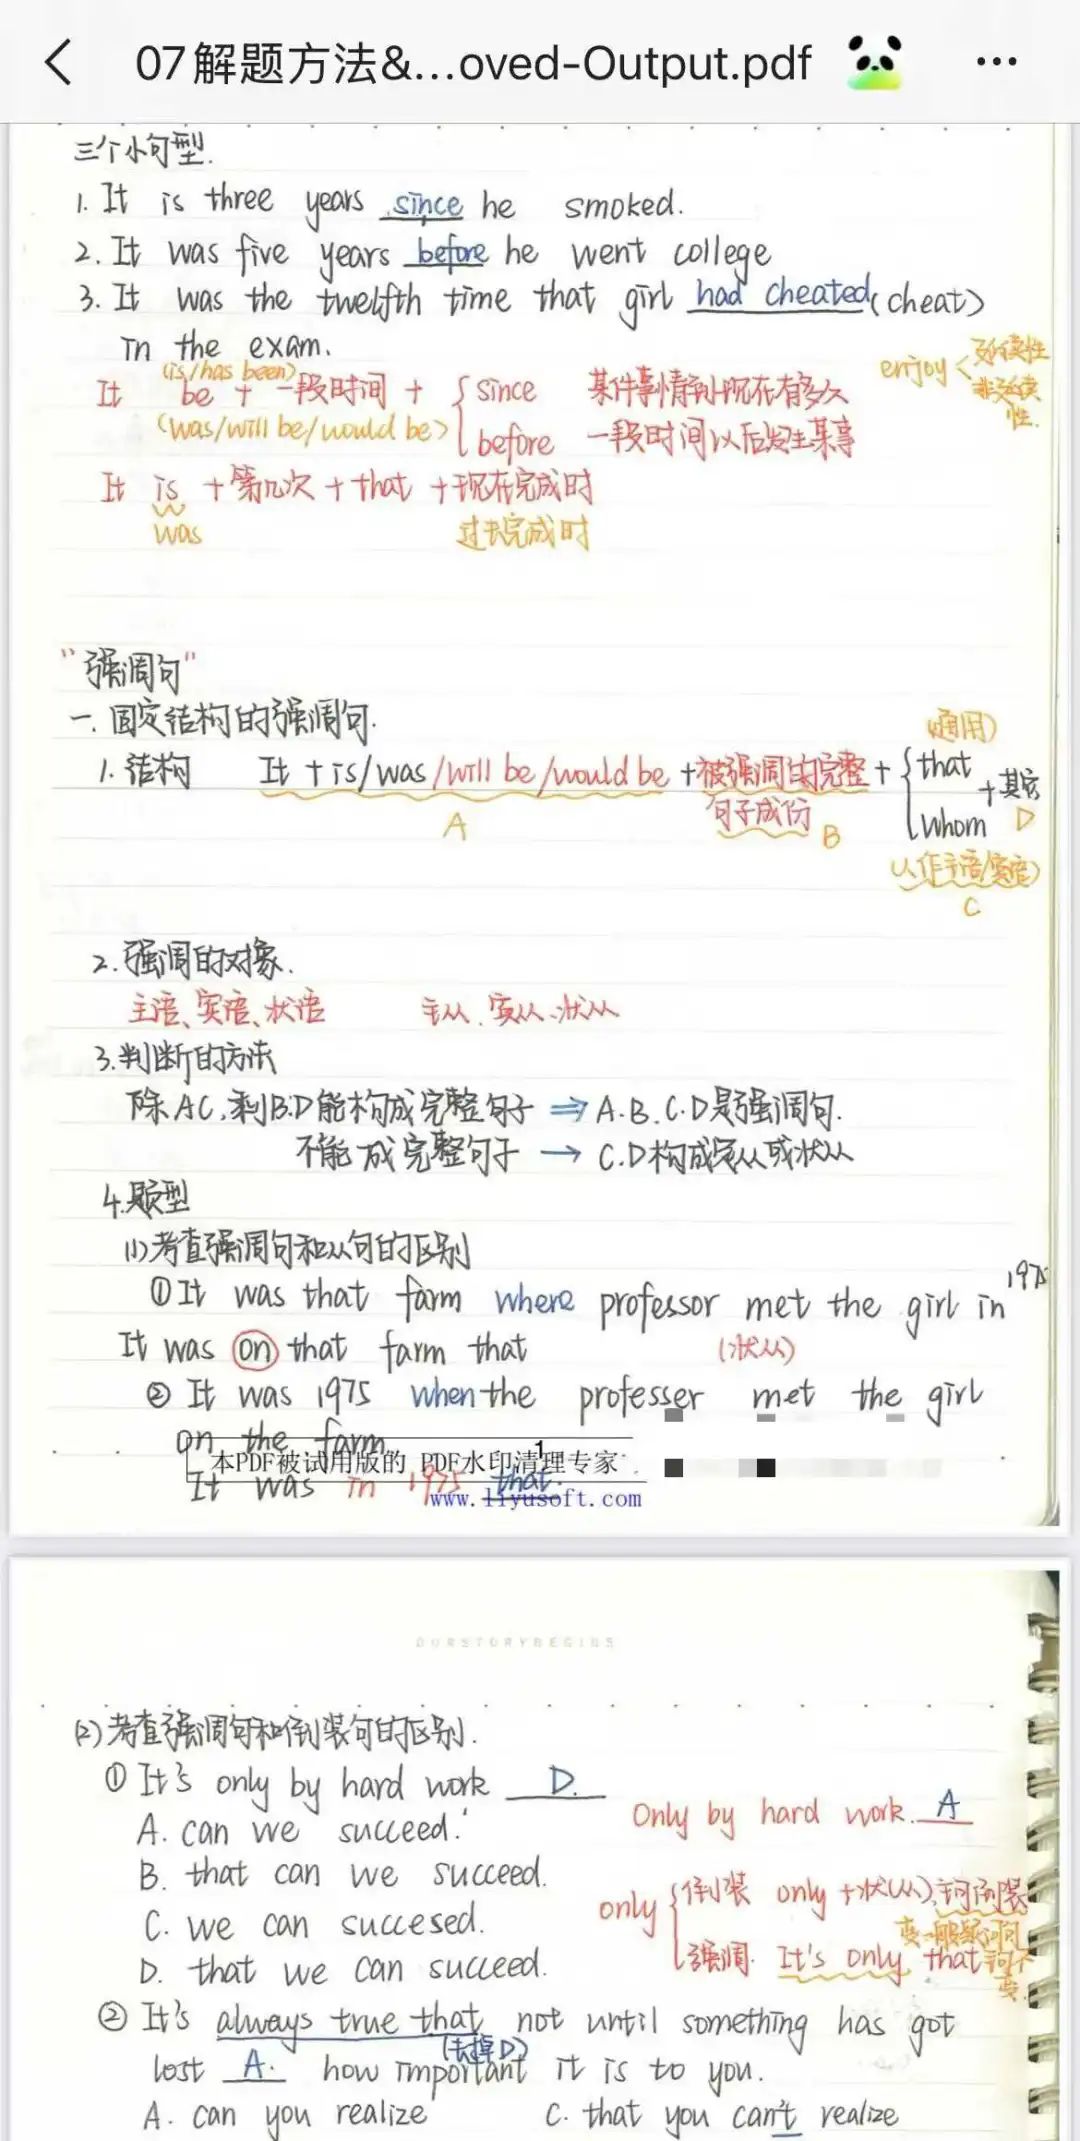 07解题方法&...oved-Output.pdf
三个小句型.
1. It is three years since he smoked.
2. It was five years before he went college
3. It was the twelfth time that girl had cheated (cheat)
in the exam.
enjoy < 延续性
非延续性.
(is/has been)
It be + 一段时间 + { since 某件事情到现在有多久
(was/will be/would be) before 一段时间以后发生某事
It is + 第几次 + that + 现在完成时
was 过去完成时
"强调句"
一. 固定结构的强调句.
(通用)
1. 结构 It + is/was/will be/would be + 被强调的完整句子成份 + { that whom + 其它
A B D
(人作主语/宾语)
C
2. 强调的对象.
主语、宾语、状语 主从、宾从、状从
3. 判断的方法
除AC,剩B.D能构成完整句子 ⇒ A.B.C.D是强调句.
不能成完整句子 → C.D构成定从或状从
4. 题型
(1) 考查强调句和从句的区别
① It was that farm where professor met the girl in 1975
It was on that farm that (状从)
② It was 1975 when the professer met the girl
on the farm.
It was in 1975 that.
1
本PDF被试用版的 PDF水印清理专家
www.liyusoft.com
OURSTORYBEGINS
(2) 考查强调句和倒装句的区别.
① It's only by hard work D.
A. can we succeed.
B. that can we succeed.
C. we can succesed.
D. that we can succeed.
Only by hard work. A
only { 倒装 only + 状(从), 主句倒装
变一般疑问句
强调. It's only, that 句不变.
② It's always true that not until something has got
(去掉D)
lost A. how important it is to you.
A. can you realize C. that you can't realize